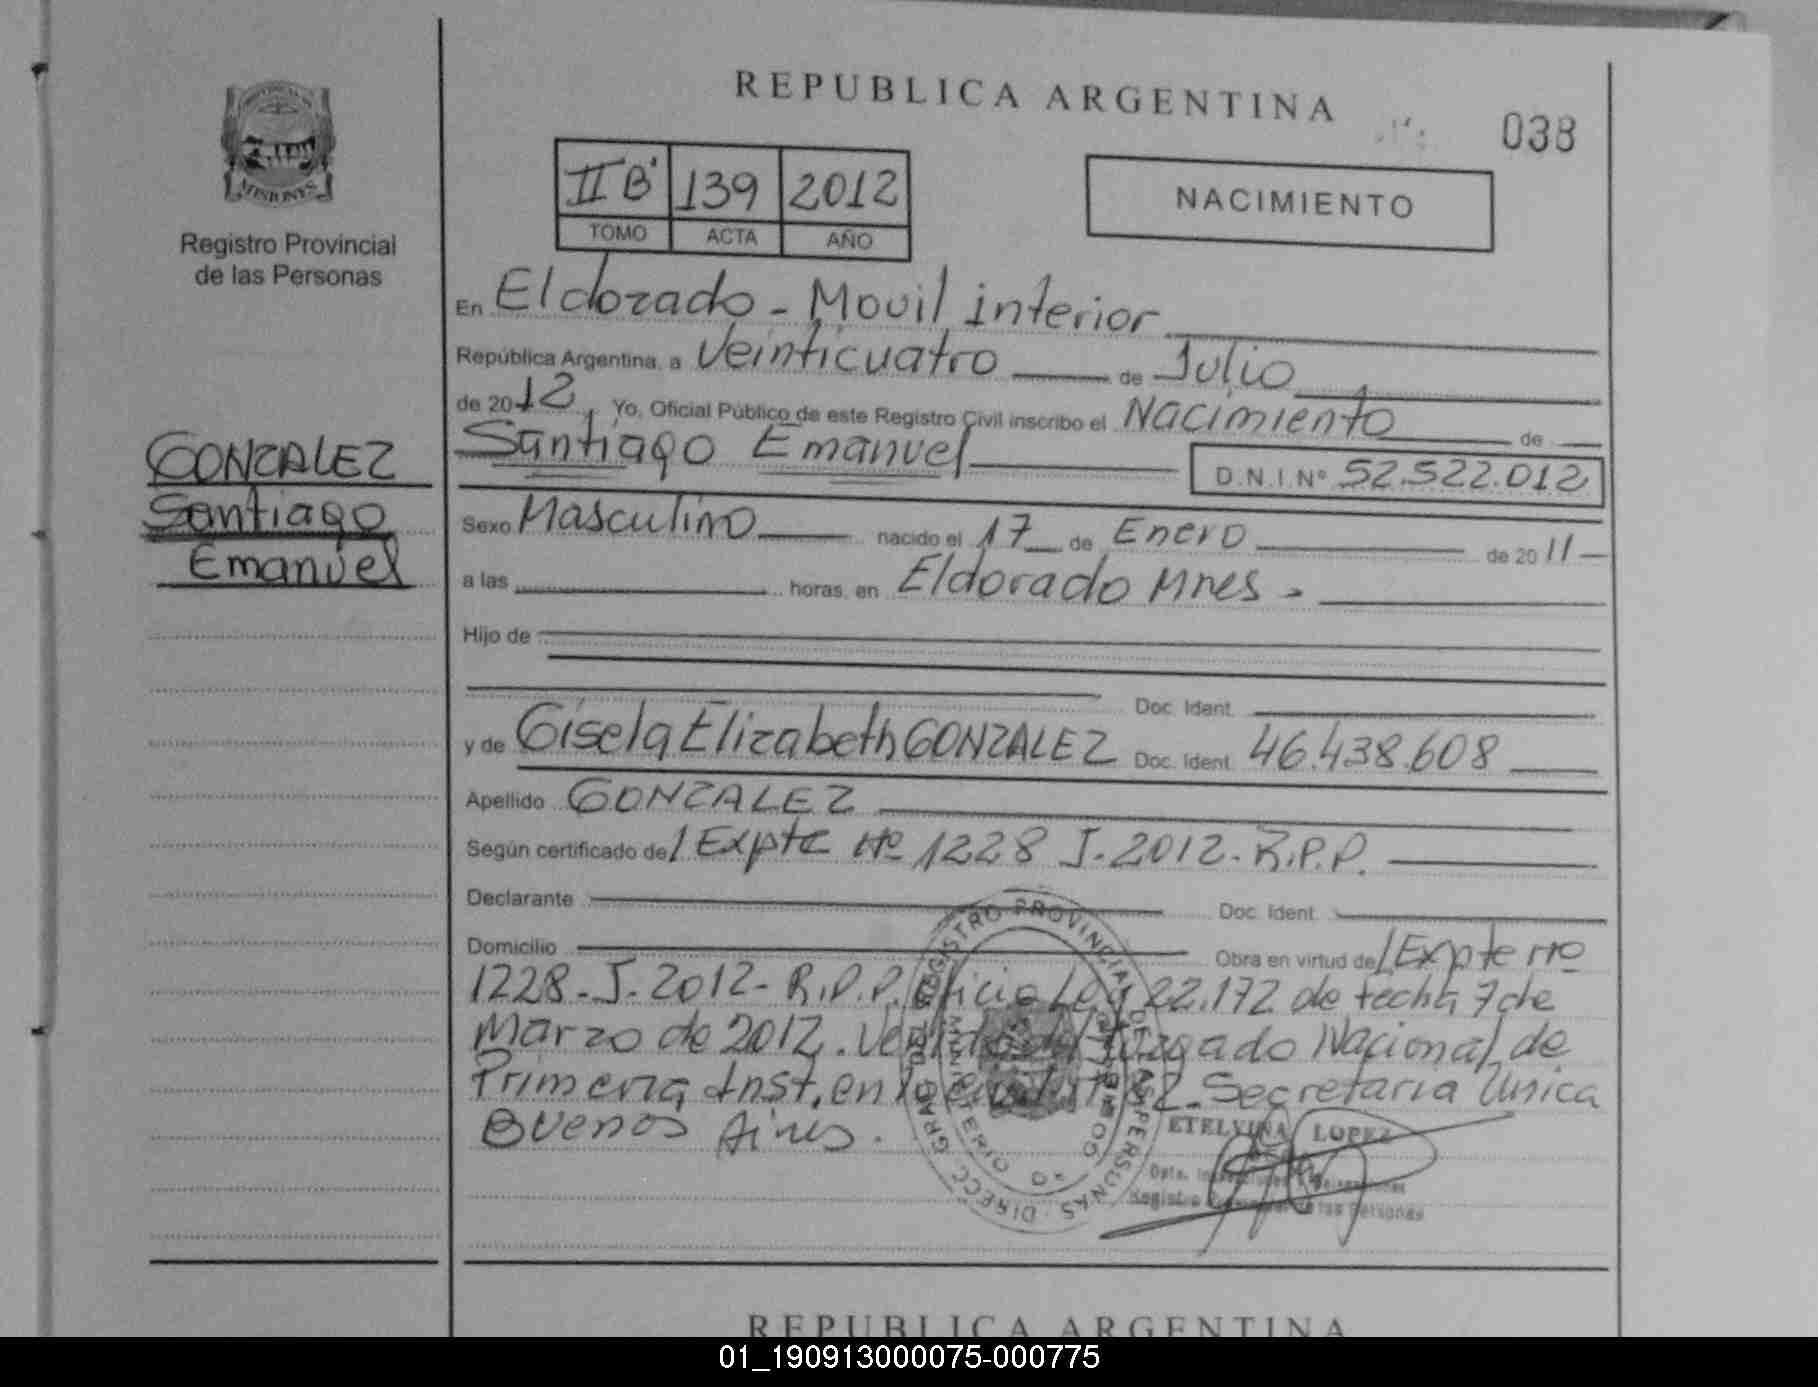 REPUBLICA ARGENTINA
038
MISIONES
Registro Provincial
de las Personas
II B' 139 2012
TOMO ACTA AÑO
NACIMIENTO
En Eldorado - Movil interior
República Argentina, a Veinticuatro de Julio
de 2012, Yo, Oficial Público de este Registro Civil inscribo el Nacimiento de
GONZALEZ
Santiago
Emanuel
Santiago Emanuel D.N.I.Nº 52.522.012
Sexo Masculino nacido el 17 de Enero de 2011
a las horas, en Eldorado Mnes -
Hijo de
Doc. Ident.
y de Gisela Elizabeth GONZALEZ Doc. Ident. 46.438.608
Apellido GONZALEZ
Según certificado de / Expte Nº 1228 J. 2012. R.P.P.
Declarante Doc. Ident.
Domicilio Obra en virtud de / Expte nº
1228. J. 2012. R.P.P. Oficio Ley 22.172 de fecha 7 de
Marzo de 2012. Juzgado Nacional de
Primera Inst. en lo 82. Secretaria Unica
Buenos Aires.
DIRECC. GRAL. DEL REGISTRO PROVINCIAL DE LAS PERSONAS
MINISTERIO DE GOBIERNO
ETELVINA LOPEZ
Dpto.
Registro Provincial de las Personas
REPUBLICA ARGENTINA
01_190913000075-000775